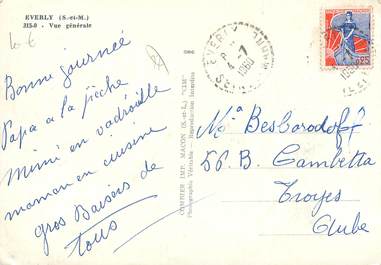 EVERLY (S.-et-M.)
315-0 - Vue générale
10 €
Bonne journée
Papa a la pêche
Mimi en vadrouille
maman en cuisine
gros Baisers de
tous
COMBIER IMP. MACON (S.-et-L.) "CIM"
Photographie Véritable Reproduction Interdite
EVERLY
7
1960
0,25
Ma Besborodoff
56 B. Gambetta
Troyes
Aube